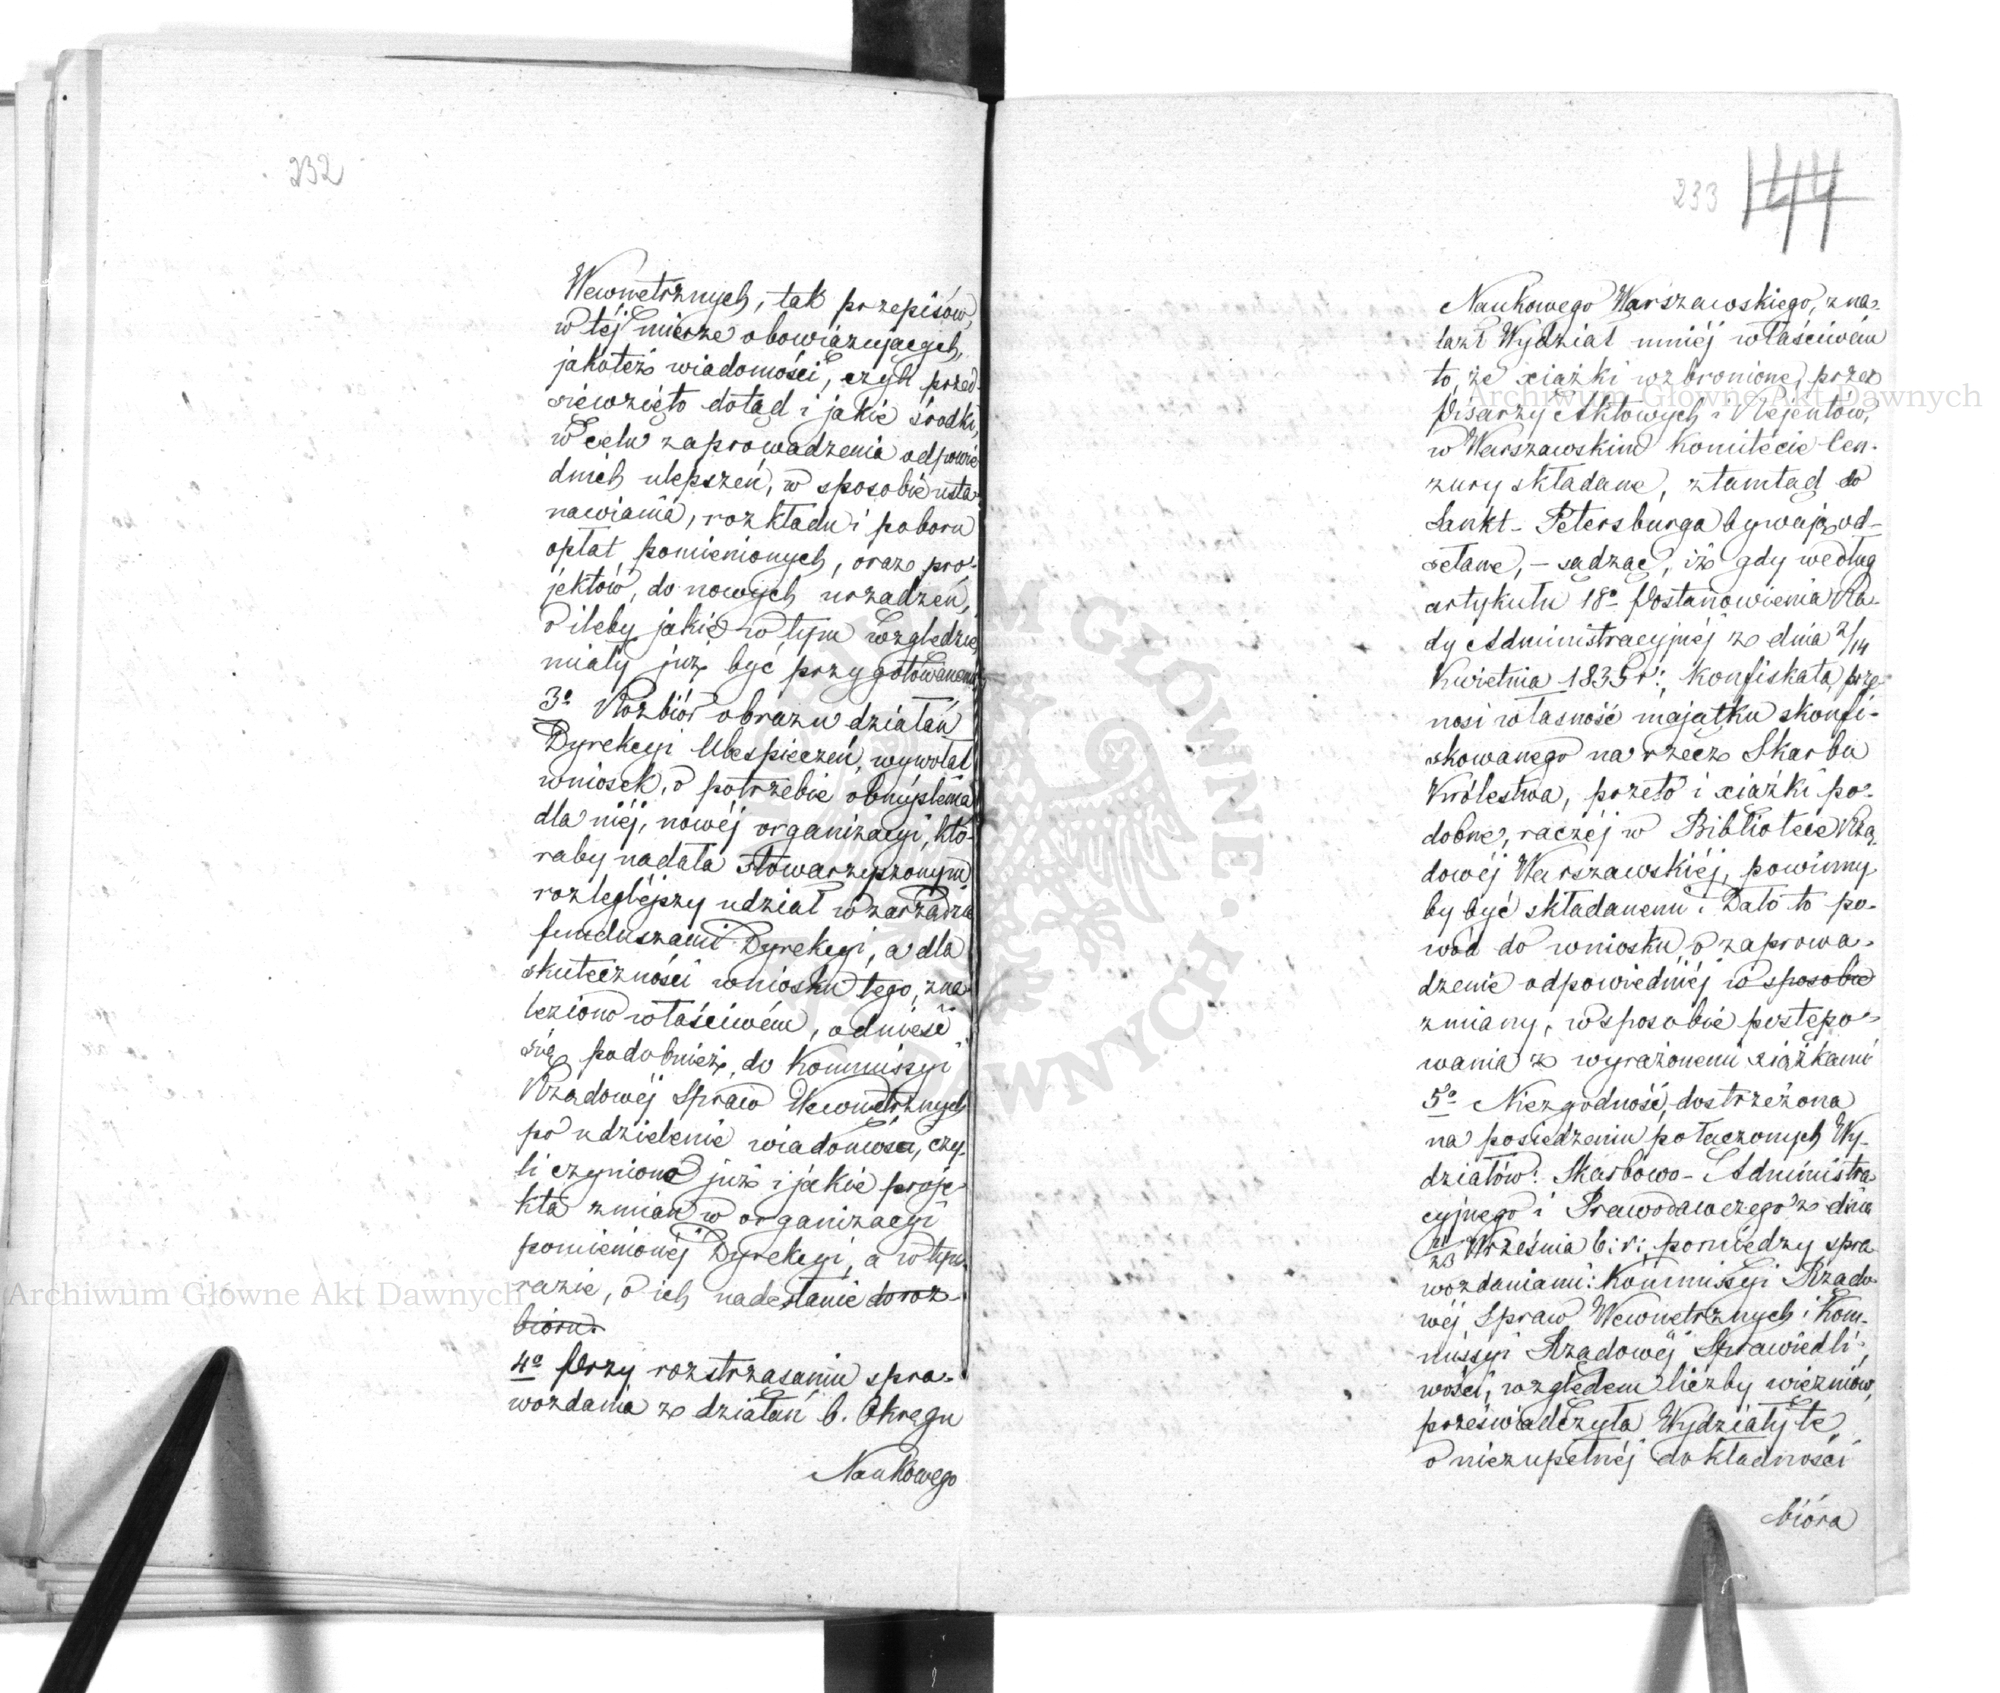 232
Wewnętrznych, tak przepisów,
w téj mierze obowiązujących,
jakoteż wiadomości, czyli przed-
sięwzięto dotąd i jakie środki,
w celu zaprowadzenia odpowie-
dnich ulepszeń, w sposobie usta-
nawiania, rozkładu i poboru
opłat, pomienionych, oraz pro-
jektów, do nowych urządzeń,
o ileby jakie w tym względzie
miały już być przygotowanemi
3º Rozbiór obrazu działań
Dyrekcyi Ubespieczeń, wywołał
wniosek, o potrzebie obmyślenia
dla niéj, nowéj organizacyi, któ-
raby nadała stowarzyszonym
rozleglejszy udział w zarządzie
funduszami Dyrekcyi, a dla
skuteczności wniosku tego, zna-
leziono właściwém, odnieść
się podobnież, do Kommissyi
Rządowéj Spraw Wewnętrznych
po udzielenie wiadomości, czy-
li czyniono już i jakie proje-
kta zmian w organizacyi
pomienionéj Dyrekcyi, a w tym
razie, o ich nadesłanie do roz-
bioru.
4º Przy roztrząsaniu spra-
wozdania z działań b. Okręgu
Naukowego
233 144
Naukowego Warszawskiego, zna-
lazł Wydział mniéj właściwém
to, że xiążki wzbronione, przez
Pisarzy Aktowych i Rejentów,
w Warszawskim Komitecie Cen-
zury składane, ztamtąd do
Sankt-Petersburga bywają od-
sełane, – sądząc, iż gdy według
artykułu 18º Postanowienia Ra-
dy Administracyjnéj z dnia 2/14
Kwietnia 1835 r:, konfiskata prze-
nosi własność majątku skonfi-
skowanego na rzecz Skarbu
Królestwa, przeto i xiążki po-
dobne, raczéj w Bibliotece Rzą-
dowéj Warszawskiéj, powinny
by być składanemi: Dało to po-
wód do wniosku, o zaprowa-
dzenie odpowiedniéj w sposobie
zmiany, w sposobie postępo-
wania z wyrażonemi xiążkami
5º Niezgodność, dostrzeżona
na posiedzeniu połączonych Wy-
działów: Skarbowo-Administra-
cyjnego i Prawodawczego z dnia
11/23 Września b: r:, pomiędzy spra-
wozdaniami: Kommissyi Rządo-
wéj Spraw Wewnętrznych i Kom-
missyi Rządowéj Sprawiedli-
wości, względem liczby więźniów,
przeświadczyła Wydziały te,
o niezupełnéj dokładności
bióra
Archiwum Główne Akt Dawnych
Archiwum Główne Akt Dawnych